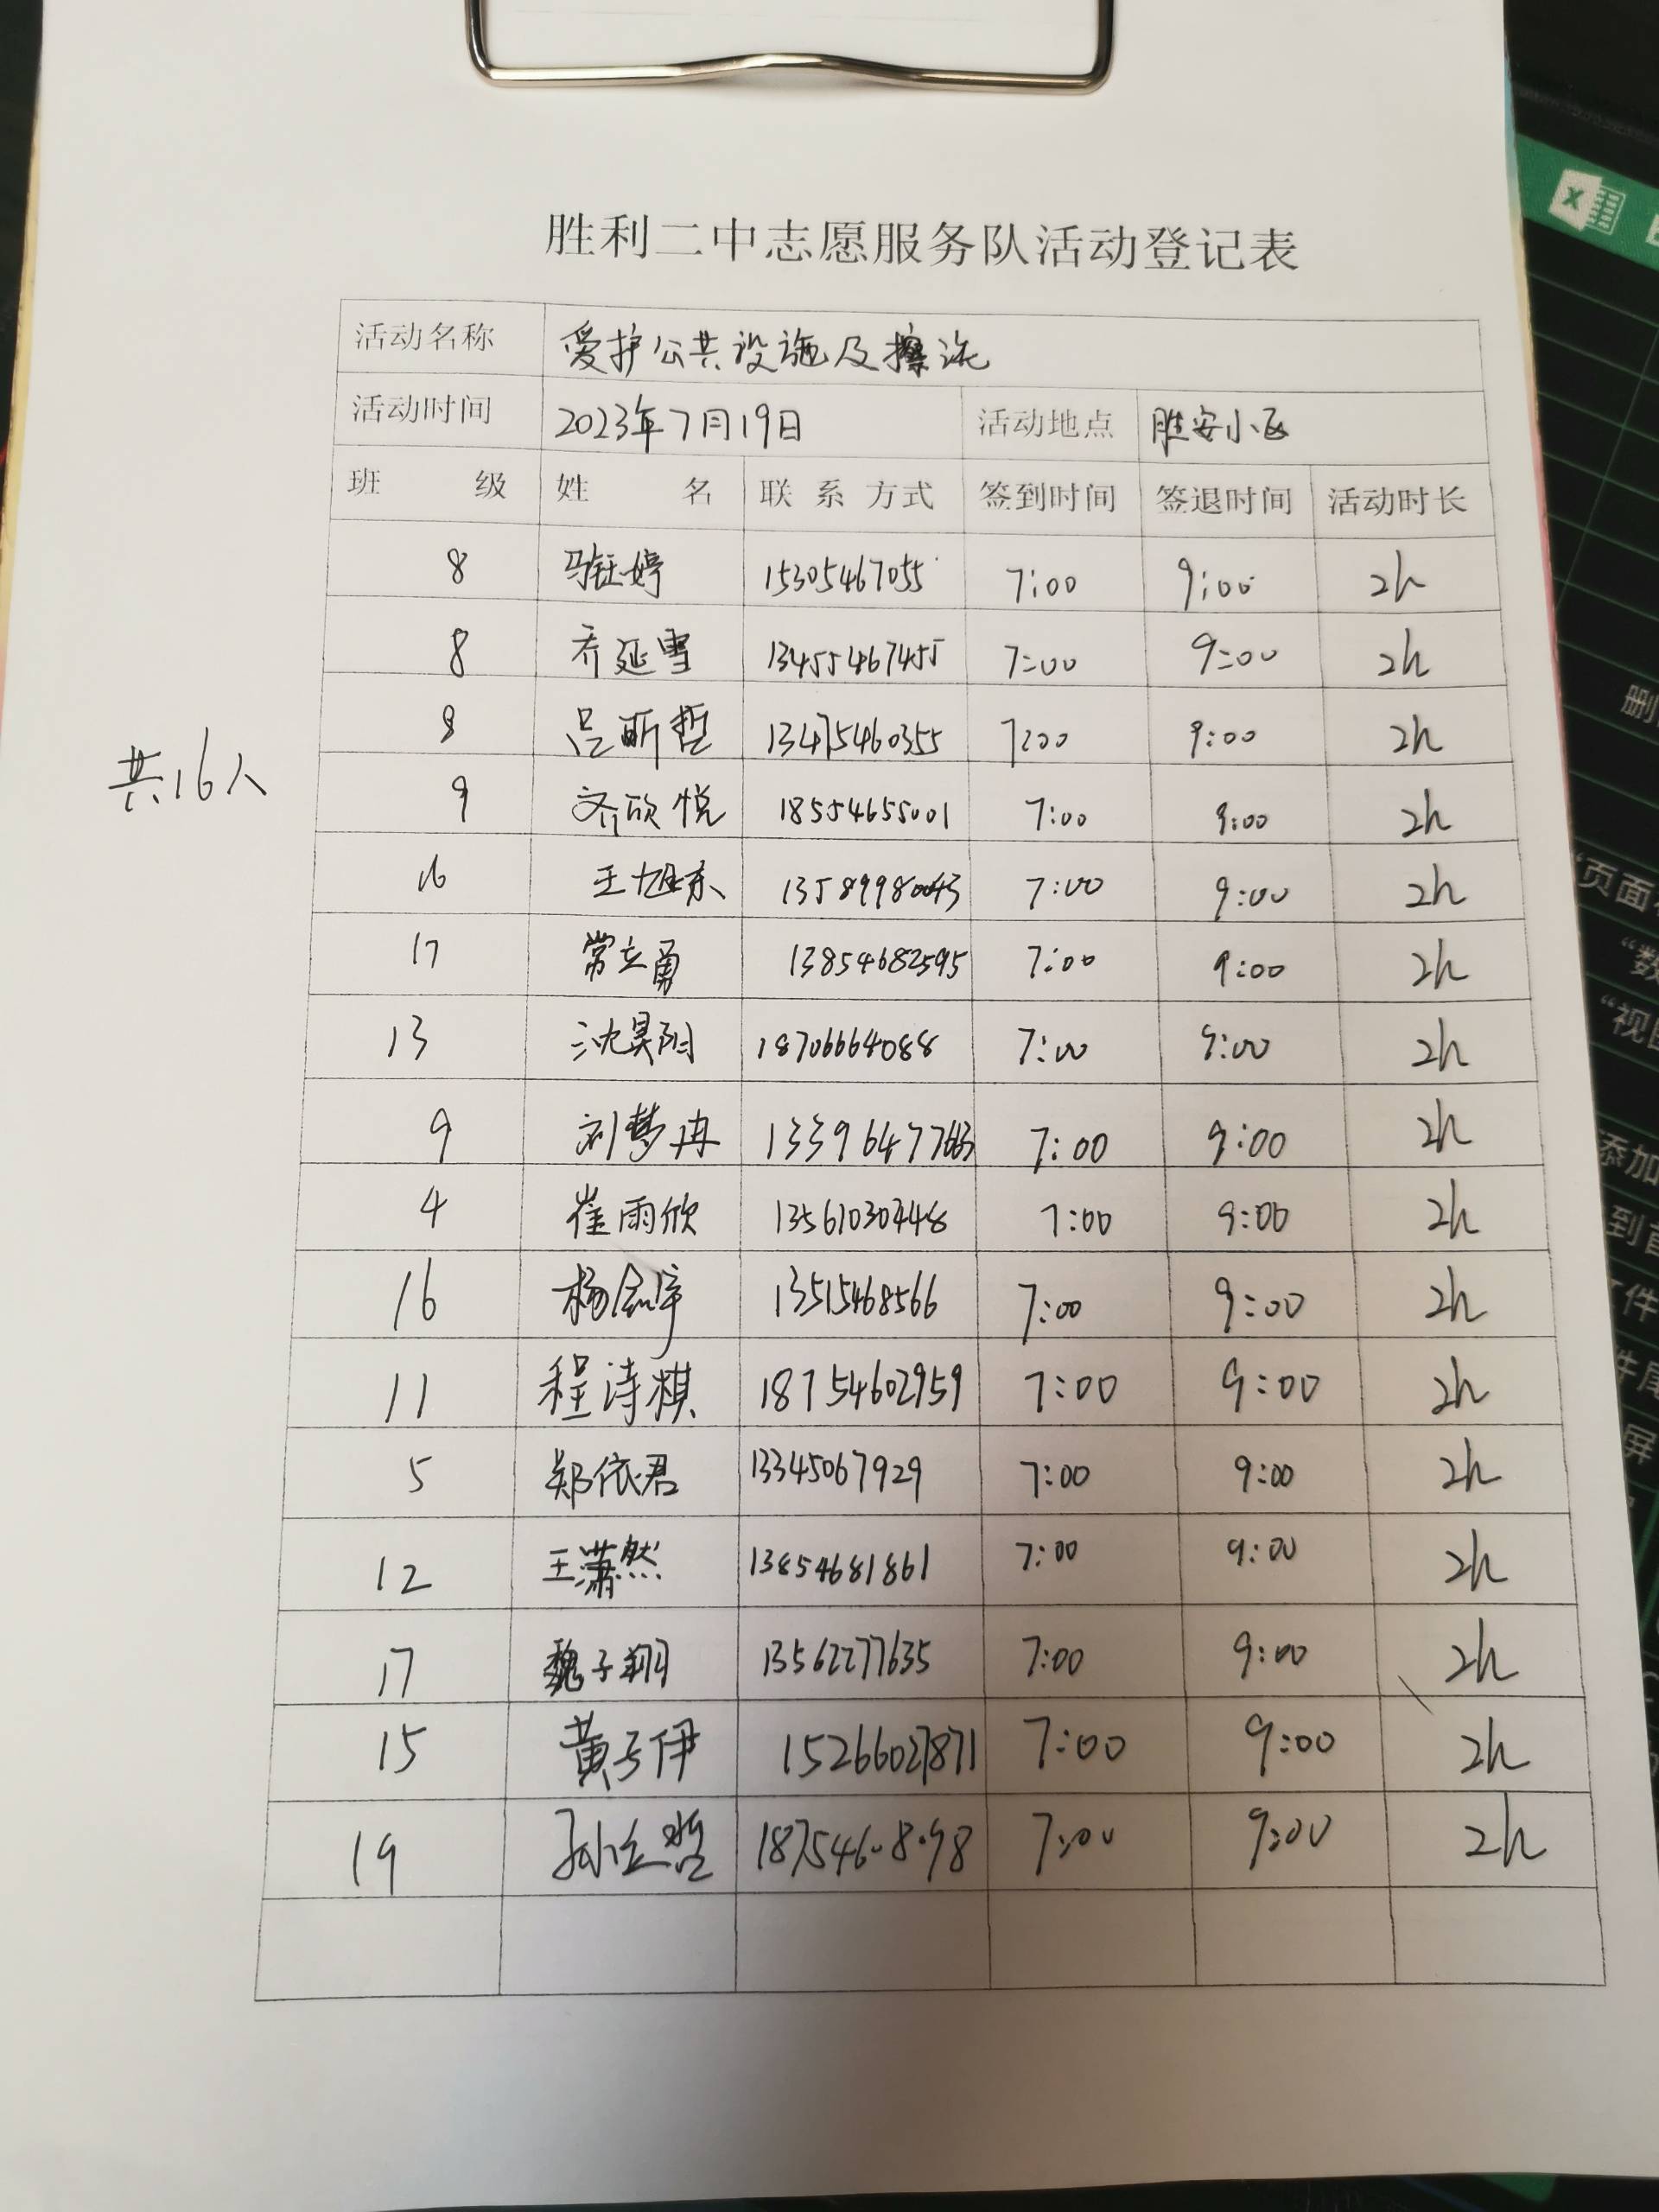 胜利二中志愿服务队活动登记表
活动名称 爱护公共设施及擦洗
活动时间 2023年7月19日 活动地点 胜安小区
班级 姓名 联系方式 签到时间 签退时间 活动时长
8 马钰婷 15305467055 7:00 9:00 2h
8 乔延雪 13455467455 7:00 9:00 2h
8 吕昕哲 13475460355 7:00 9:00 2h
共16人
9 齐欣悦 18554655001 7:00 9:00 2h
16 王旭东 13589980043 7:00 9:00 2h
17 常立勇 13854682595 7:00 9:00 2h
13 沈昊阳 18706664088 7:00 9:00 2h
9 刘梦冉 13396477663 7:00 9:00 2h
4 崔雨欣 7:00 9:00 2h
16 杨 13515468566 7:00 9:00 2h
11 程诗棋 18754602959 7:00 9:00 2h
5 郑依君 13345067929 7:00 9:00 2h
12 王潇然 13854681861 7:00 9:00 2h
17 魏子翔 13562277635 7:00 9:00 2h
15 黄子伊 15266027871 7:00 9:00 2h
19 孙立哲 18754608098 7:00 9:00 2h
删
“页面
“数
“视
添加
到首
文件
件尾
屏